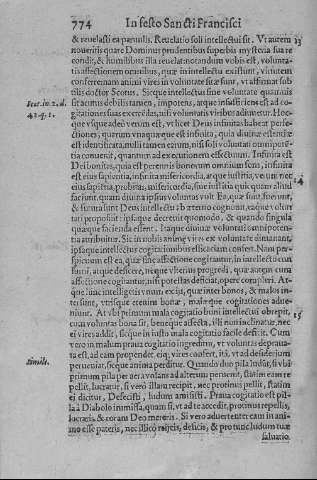 774 In festo Sancti Francisci
& reuelasti ea paruulis. Reuelatio soli intellectui sit. Vt autem 13
noueritis quare Dominus prudentibus superbis mysteria sua re
condit, & humilibus illa reuelat notandum vobis est, volunta-
tis affectionem omnibus, quæ in intellectu existunt, virtutem
conferre nam animi vires sine voluntate sitæ sunt, vt affirmat sub
Scot. in 2. d. tilis doctor Scotus. Sicque intellectus sine voluntate quamuis
42. q. 1. sit acutus debilis tamen, impotens, atque insufficiens est ad co-
gitationes suas exercendas, nisi voluntatis viribus adiuuetur. Hoc-
que vsque adeo verum est, vt licet Deus infinitas habeat perfe-
ctiones, quarum vnaquæque est infinita, quia diuinæ essentiæ
est identificata, nulli tamen earum, nisi soli voluntati omnipoten-
tia conuenit, quantum ad executionem effectuum. Infinita est
Dei bonitas, quia est perennis bonorum omnium fons, infinita
est eius sapientia, infinita misericordia, atque iustitia, verum nec 14
eius sapientia, probitas, misericordia, siue iustitia quicquam aliud
faciunt, quam diuina ipsius voluntas vult. Ea, quæ sunt, fuerunt,
& futura sunt Deus intellectu ab æterno cognouit,
tari proposuit: ipsaque decreuit quomodo, & quando singula
quæque facienda essent. Itaque diuinæ voluntati omnipoten-
tia attribuitur. Sic in nobis animę vires ex voluntate dimanant,
ipsaque intellectus cogitationibus efficaciam confert. Nam per-
spicuum est ea, quæ sine affectione cogitantur, in intellectu con
sumi, atque deficere, neque vlterius progredi, quæ autem cum
affectione cogitantur, in potestates desiliunt, opere compleri. At-
que hinc intelligitis vnum exijs, quæ inter bonos, & malos in-
tersunt, vtrisque etenim bonæ, malæque cogitationes adue-
niunt. At vbi primum mala cogitatio boni intellectui obrepit, 15
cum voluntas bona sit, beneque affecta, illi non inclinatur, nec
ei vires addit, sicque in iustis mala cogitatio facile desicit. Cum
vero in malum praua cogitatio ingreditur, vt voluntas deprauа-
ta est, ad eam propendet, eiq; vires confert, ita, vt ad desiderium
Simile. perueniat, sicque anima perditur. Quando duo pila lusitant, si vbi
primum pila per aera volans ad alterum peruenit, statim eam re
pellit, lucratur, si vero illam recipit, nec protinus pellit, statim
ei dicitur, Defecisti, ludum amisisti. Praua cogitatio est pil-
la à Diabolo immissa, quam si, vt ad te accedit, protinus repellis,
lucraris, & coram Deo mereris. Si vero aduertenter eam in ani-
mo esse pateris, nec illico reijcis, deficis, & protinus ludum tuæ
saluatio.